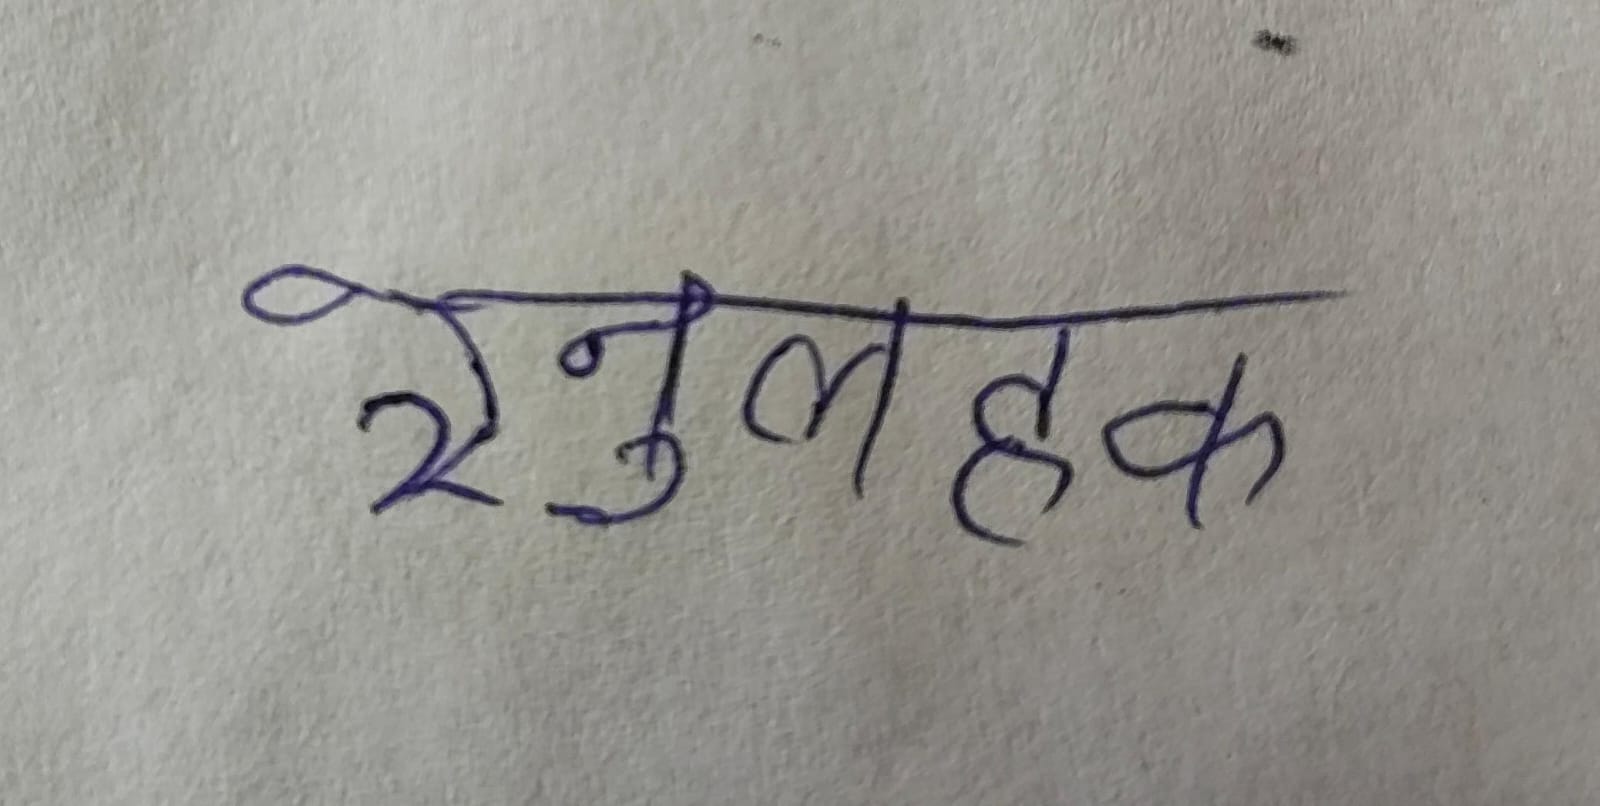 रेनुलहक